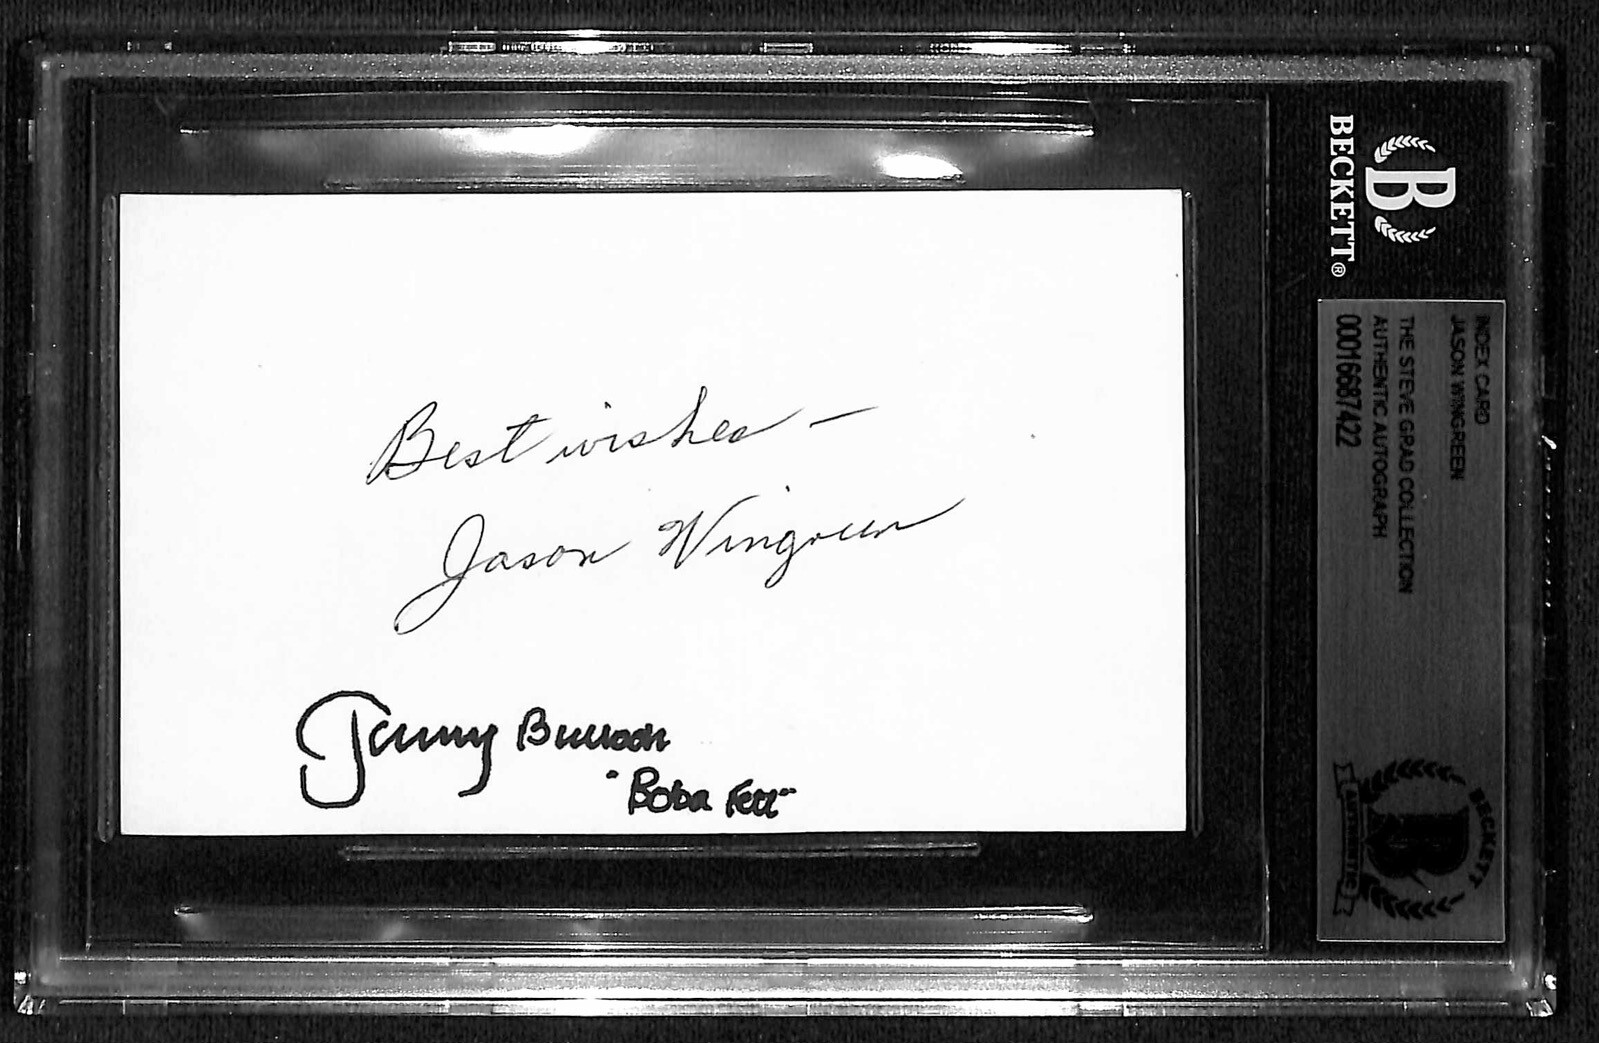 Best wishes –
Jason Wingreen
Jeremy Bulloch
"Boba Fett"
B
BECKETT®
INDEX CARD
JASON WINGREEN
THE STEVE GRAD COLLECTION
AUTHENTIC AUTOGRAPH
00016687422
BECKETT
B
AUTHENTIC